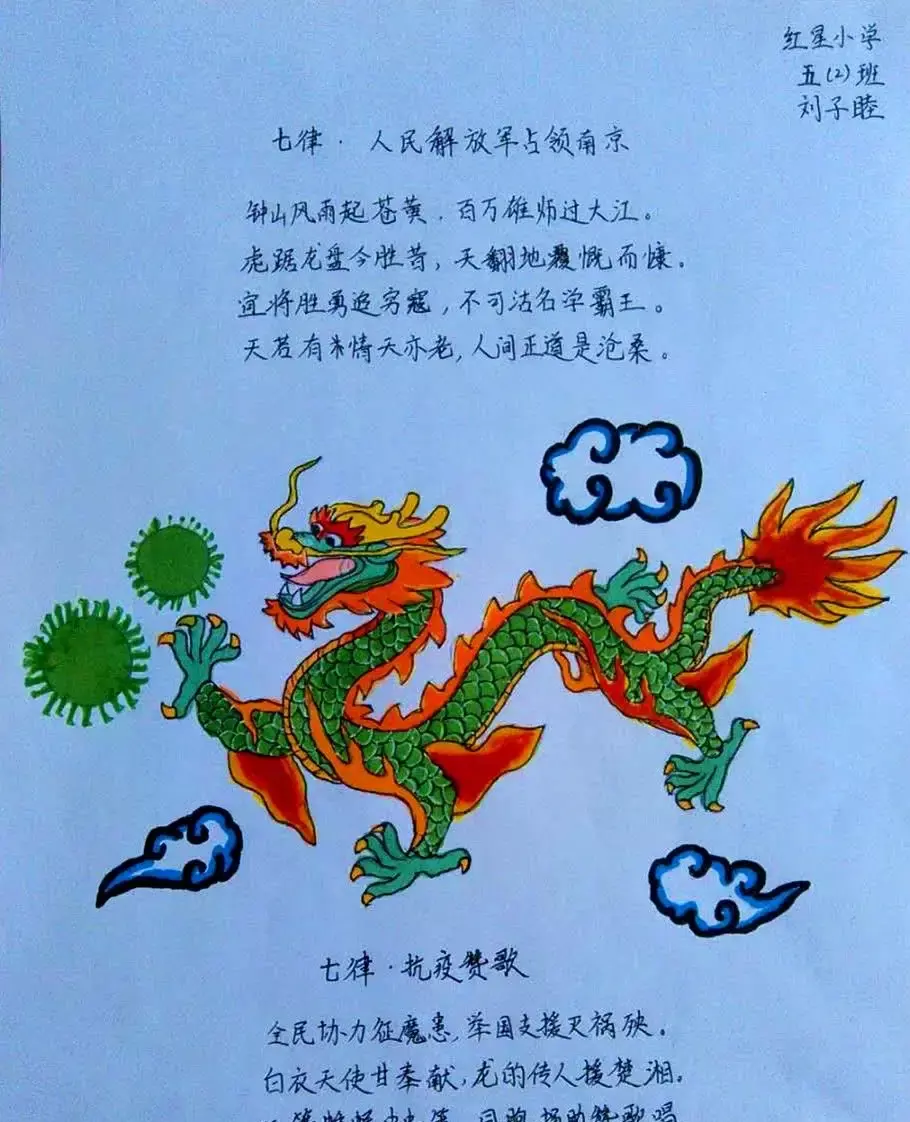 红星小学
五(2)班
刘子睦
七律·人民解放军占领南京
钟山风雨起苍黄，百万雄师过大江。
虎踞龙盘今胜昔，天翻地覆慨而慷。
宜将胜勇追穷寇，不可沽名学霸王。
天若有情天亦老，人间正道是沧桑。
七律·抗疫赞歌
全民协力征魔患，举国支援灭祸殃。
白衣天使甘奉献，龙的传人援楚湘。
同胞 助赞歌唱